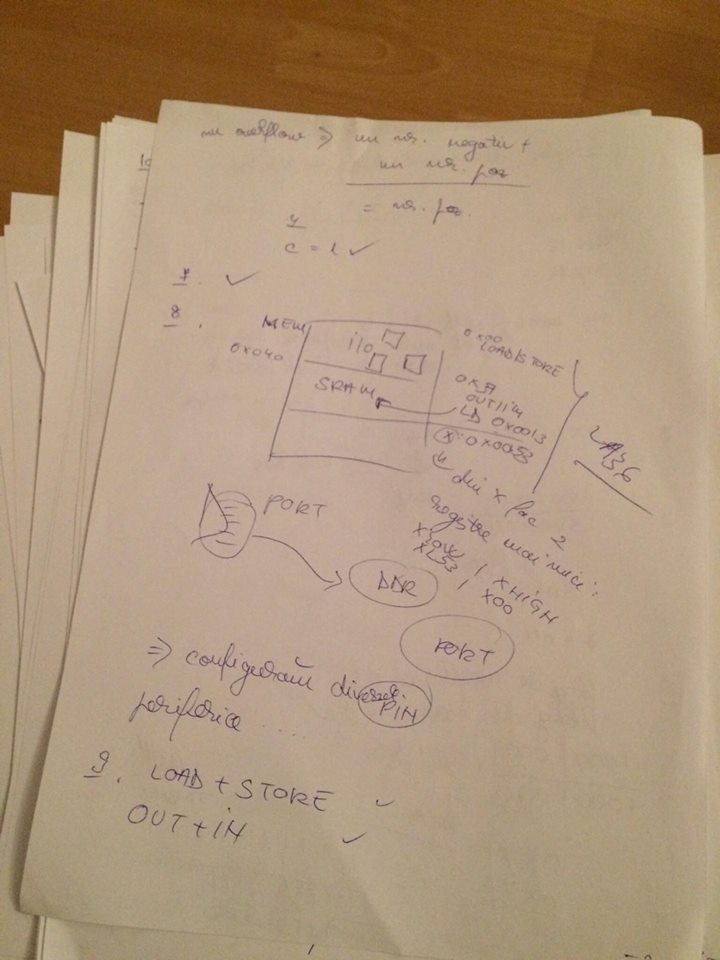 nu overflow => un nr. negativ +
un nr. poz
= nr. poz.
C = 1 ✓
7. ✓
8.
MEM
0x040
i/o
SRAM
0x00
LOAD/STORE
OUT/iN
LD 0x0013
X: 0x0053
din x fac 2
registre mai mici:
XLOW / XHIGH
XL53 / X00
PORT
DDR
PORT
PIN
=> configurăm diverse
periferice ....
9. LOAD + STORE ✓
OUT + iN ✓